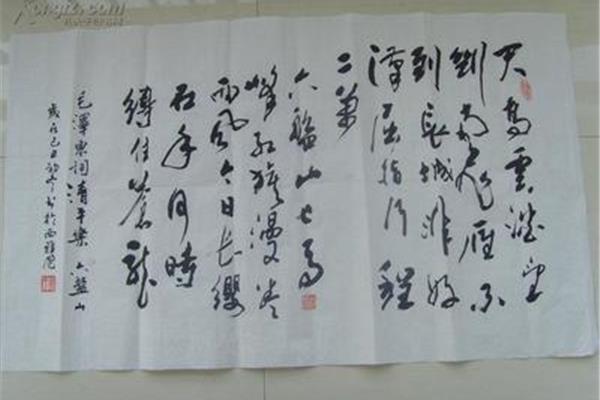 天高雲淡望
断南飛雁不
到長城非好
漢屈指行程
二萬
六盤山上高
峰紅旗漫卷
西風今日長纓
在手何時
縛住蒼龍
毛澤東詞清平樂 六盤山
歲在己丑初冬书於西
Kongfz.com